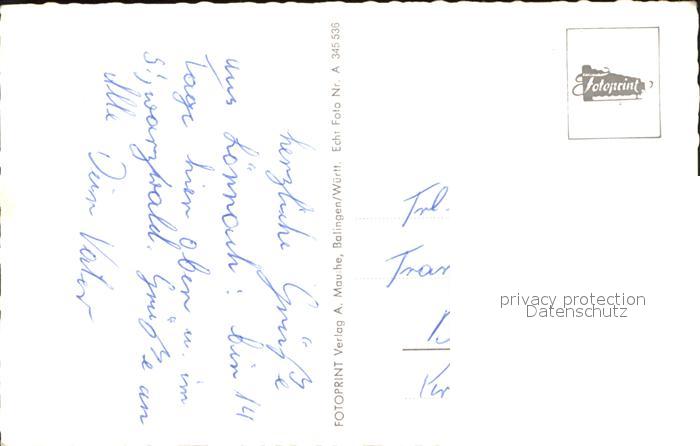 herzliche Grüße
aus Lörrach! bin 14
Tage hier oben u. im
Schwarzwald. Grüße an
Alle Dein Vater
FOTOPRINT Verlag A. Mauthe, Balingen/Württ. Echt Foto Nr. A 345 536
Fotoprint
Frl.
privacy protection
Datenschutz